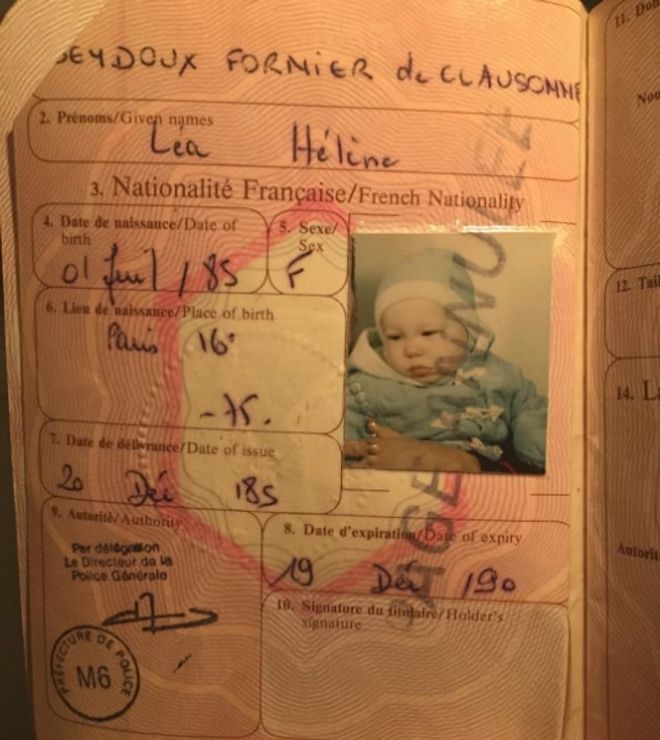 SEYDOUX FORNIER de CLAUSONNE
2. Prénoms/Given names
Léa Hélène
3. Nationalité Française/French Nationality
4. Date de naissance/Date of
birth
01 Juil / 85
5. Sexe/
Sex
F
6. Lieu de naissance/Place of birth
Paris 16°
-75.
7. Date de délivrance/Date of issue
20 Déc 185
8. Date d'expiration/Date of expiry
19 Déc 190
9. Autorité/Authority
Par délégation
Le Directeur de la
Police Générale
PRÉFECTURE DE POLICE
M6
10. Signature du titulaire/Holder's
signature
11. Dom
Nom
12. Tail
14. L
Autorit